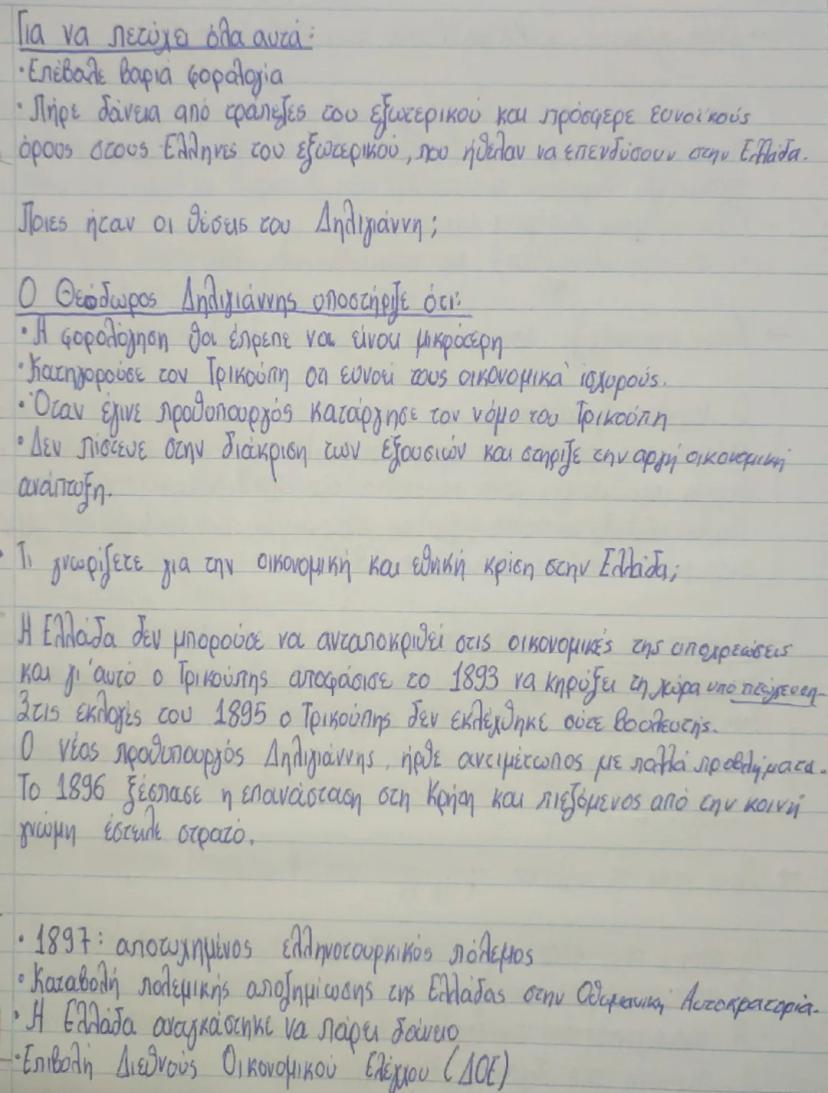 Για να πετύχει όλα αυτά:
·Επέβαλε βαριά φορολογία
·Πήρε δάνεια από τράπεζες του εξωτερικού και πρόσφερε ευνοϊκούς
όρους στους Έλληνες του εξωτερικού, που ήθελαν να επενδύσουν στην Ελλάδα.
Ποιες ήταν οι θέσεις του Δηλιγιάννη;
Ο Θεόδωρος Δηλιγιάννης υποστήριζε ότι:
·Η φορολόγηση θα έπρεπε να είναι μικρότερη
·Κατηγορούσε τον Τρικούπη ότι ευνοεί τους οικονομικά ισχυρούς.
·Όταν έγινε πρωθυπουργός κατάργησε τον νόμο του Τρικούπη
·Δεν πίστευε στην διάκριση των εξουσιών και στήριζε την αργή οικονομική
ανάπτυξη.
Τι γνωρίζετε για την οικονομική και εθνική κρίση στην Ελλάδα;
Η Ελλάδα δεν μπορούσε να ανταποκριθεί στις οικονομικές της υποχρεώσεις
και γι' αυτό ο Τρικούπης αποφάσισε το 1893 να κηρύξει τη χώρα υπό πτώχευση.
Στις εκλογές του 1895 ο Τρικούπης δεν εκλέχθηκε ούτε βουλευτής.
Ο νέος πρωθυπουργός Δηλιγιάννης, ήρθε αντιμέτωπος με πολλά προβλήματα.
Το 1896 ξέσπασε η επανάσταση στη Κρήτη και πιεζόμενος από την κοινή
γνώμη έστειλε στρατό.
·1897: αποτυχημένος ελληνοτουρκικός πόλεμος
·Καταβολή πολεμικής αποζημίωσης της Ελλάδας στην Οθωμανική Αυτοκρατορία.
·Η Ελλάδα αναγκάστηκε να πάρει δάνειο
·Επιβολή Διεθνούς Οικονομικού Ελέγχου (ΔΟΕ)